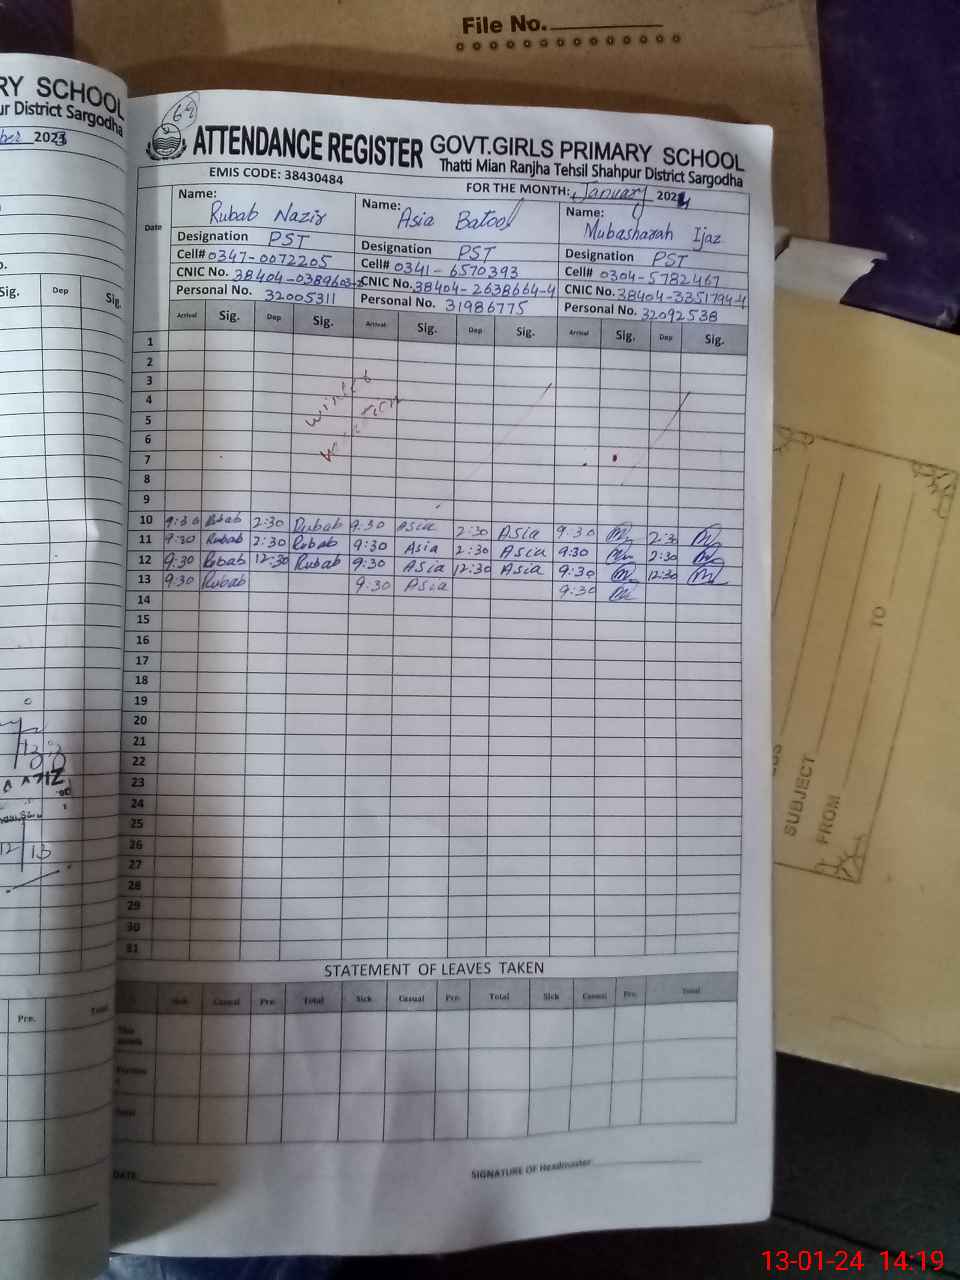 File No.
RY SCHOOL
ur District Sargodha
ber 2023
Sig. Dep Sig.
Pre. Total
68
ATTENDANCE REGISTER GOVT.GIRLS PRIMARY SCHOOL
Thatti Mian Ranjha Tehsil Shahpur District Sargodha
EMIS CODE: 38430484 FOR THE MONTH: January 2024
Date
Name: Rubab Nazir Name: Asia Batool Name: Mubasharah Ijaz
Designation PST Designation PST Designation PST
Cell# 0347-0072205 Cell# 0341-6570393 Cell# 0304-5782467
CNIC No. 38404-0389603-2 CNIC No. 38404-2638664-4 CNIC No. 38404-3351794-4
Personal No. 32005311 Personal No. 31986775 Personal No. 32092538
Arrival Sig. Dep Sig. Arrival Sig. Dep Sig. Arrival Sig. Dep Sig.
1
2
3
4
5
6
7
8
9
winter
vacation
10 9:30 Rubab 2:30 Rubab 9:30 Asia 2:30 Asia 9:30 2:30
11 9:30 Rubab 2:30 Rubab 9:30 Asia 2:30 Asia 9:30 2:30
12 9:30 Rubab 12:30 Rubab 9:30 Asia 12:30 Asia 9:30 12:30
13 9:30 Rubab 9:30 Asia 9:30
14
15
16
17
18
19
20
21
22
23
24
25
26
27
28
29
30
31
STATEMENT OF LEAVES TAKEN
Sick Casual Pre. Total Sick Casual Pre. Total Sick Casual Pre. Total
This
month
Total
DATE
SIGNATURE OF Headmaster
TO
SUBJECT
FROM
13-01-24 14:19